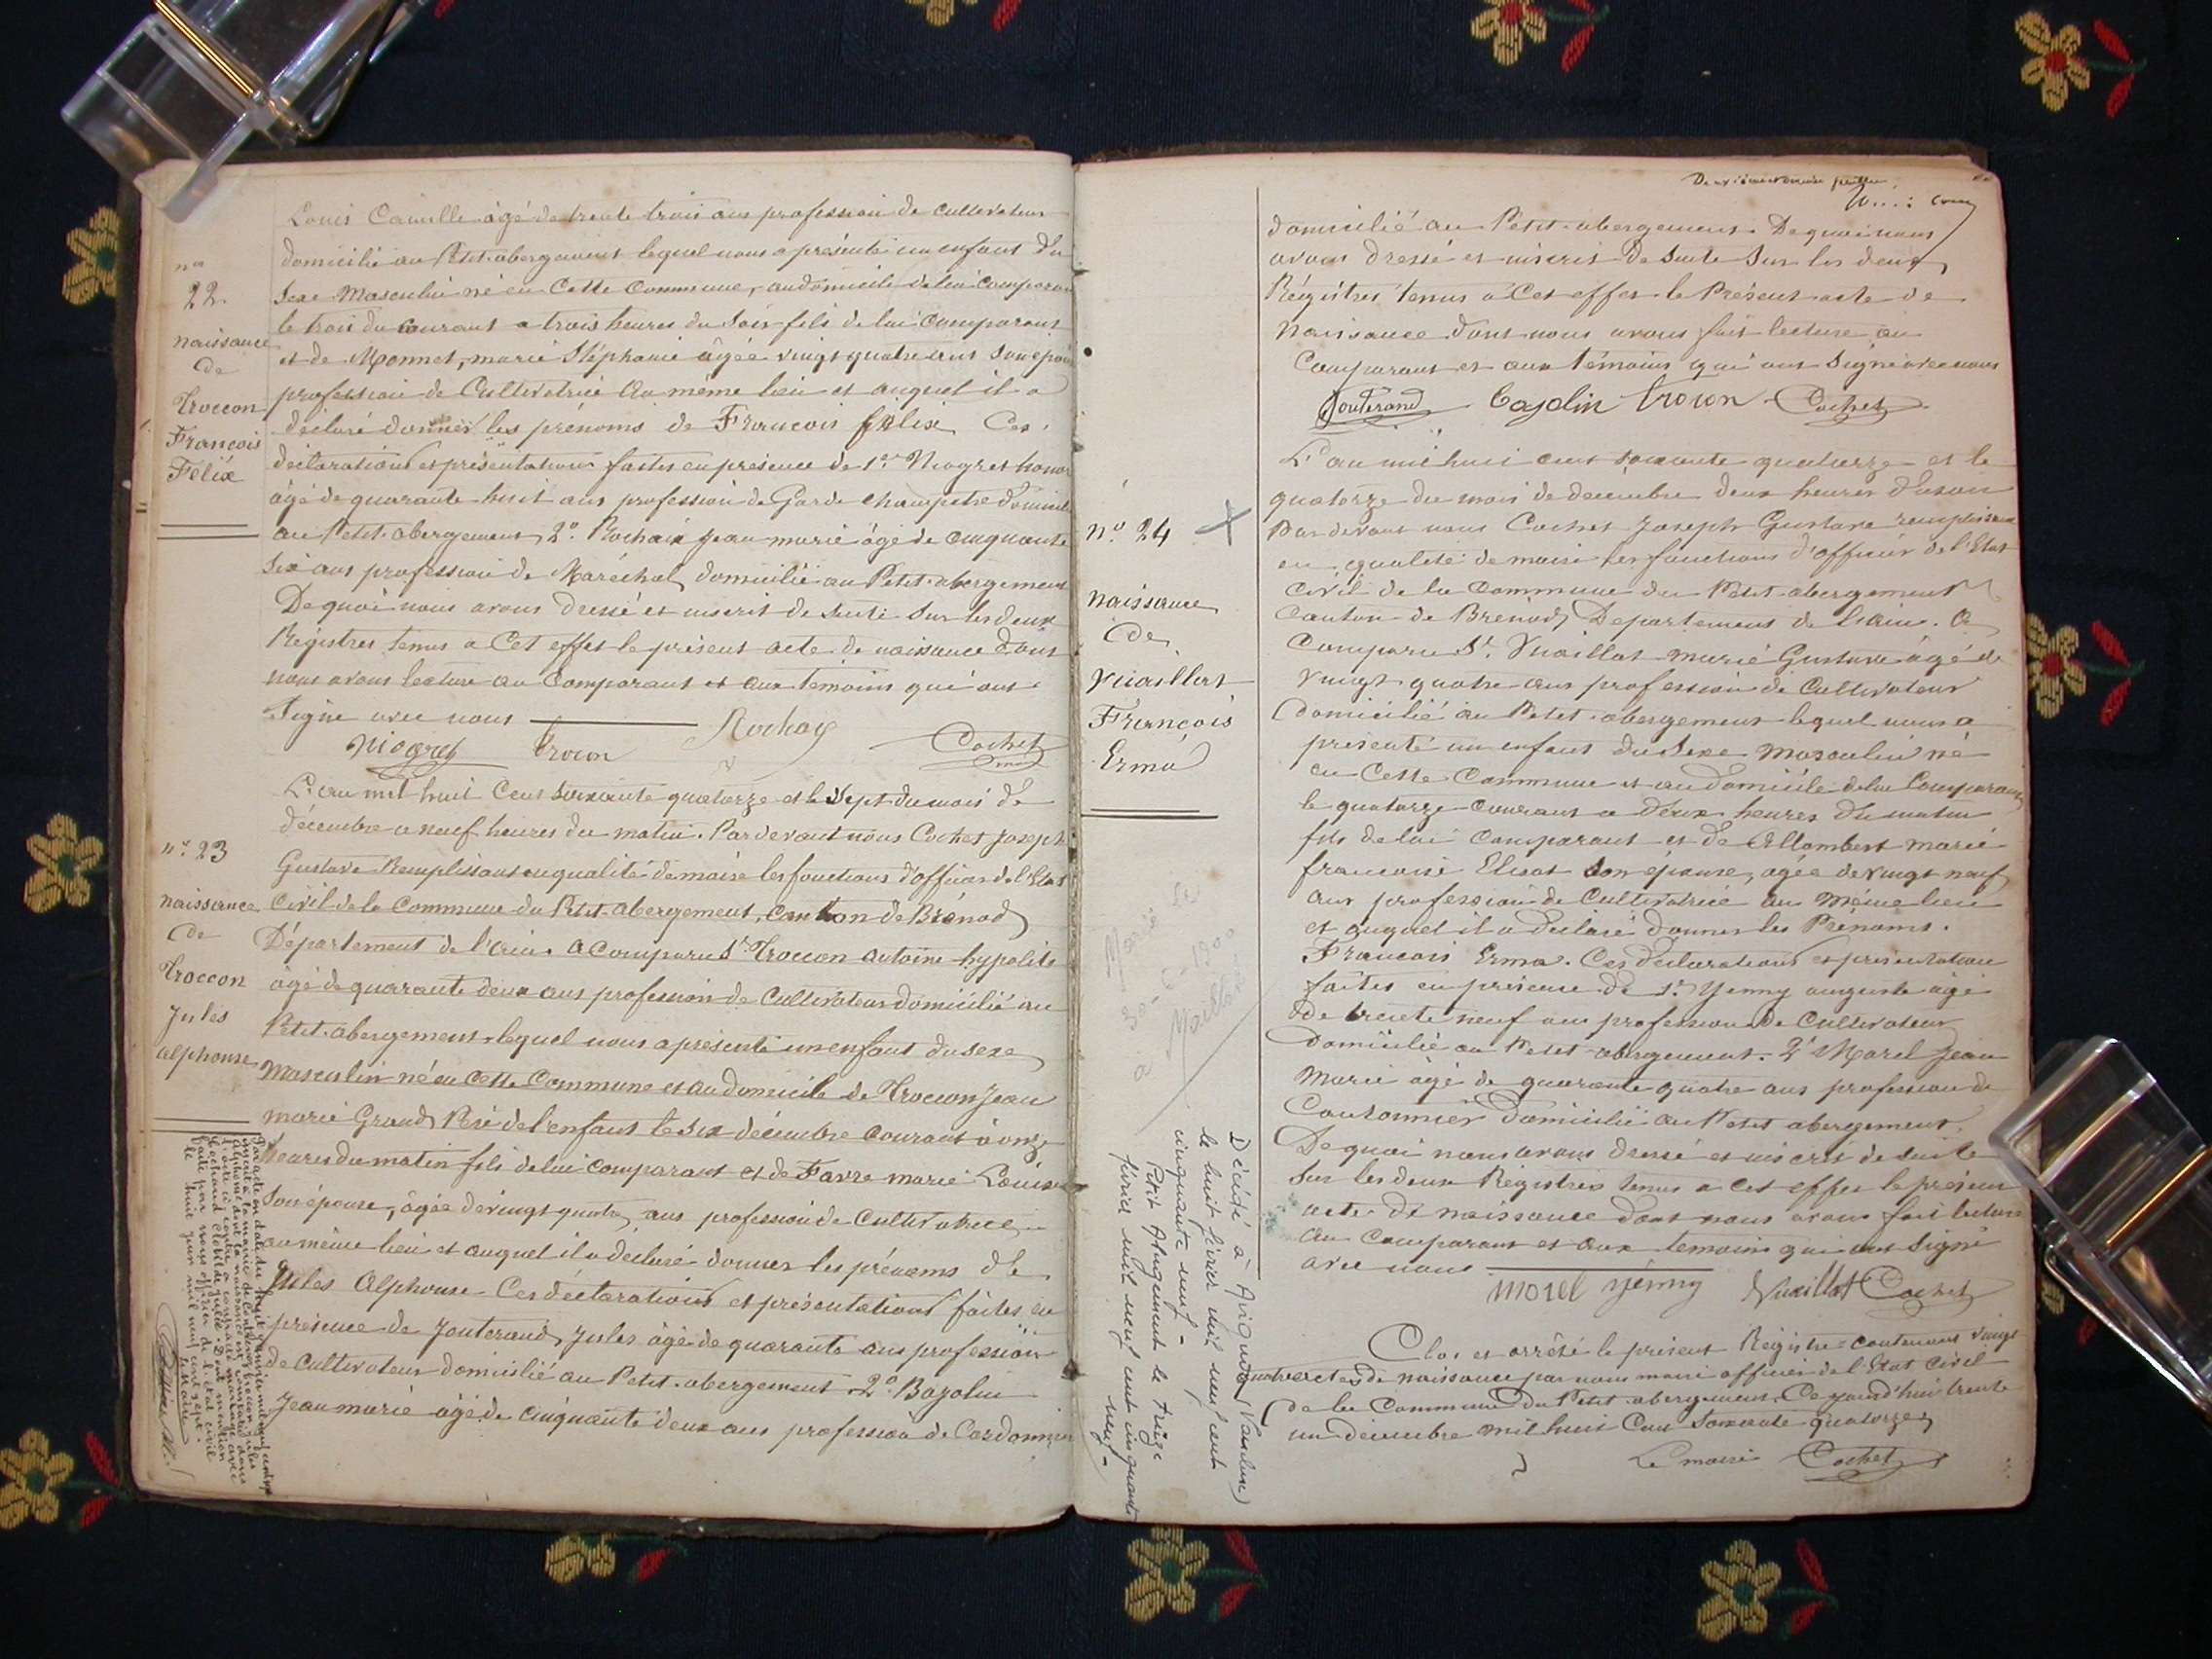 Louis Camille âgé de trente trois ans profession de cultivateur
domicilié au Petit-abergement lequel nous a présenté un enfant du
Sexe Masculin né en Cette Commune, au domicile de lui Comparant
le trois du courant a trois heures du Soir fils de lui Comparant
et de Monnet, marie Stéphanie âgée vingt quatre ans Son épouse
profession de Cultivatrice au même lieu et auquel il a
déclaré donner les prénoms de François félix Ces
déclarations et présentations faites en présence de 1er Niogret honoré
âgé de quarante huit ans profession de Garde champetre domicilié
au Petit-abergement, 2º Rochaix Jean marie âgé de cinquante
Six ans profession de Maréchal domicilié au Petit-abergement
De quoi nous avons dressé et inscrit de Suite Sur les deux
Registres tenus a Cet effet le présent acte de naissance dont
nous avons lecture au Comparant et aux témoins qui ont
Signé avec nous
Niogret Trocon Rochay Cochet
nº
22.
naissance
de
Troccon
François
Félix
L'an mil huit Cent Soixante quatorze et le Sept du mois de
décembre a neuf heures du matin. Par devant nous Cochet Joseph
Gustave Remplissant en qualité de maire les fonctions d'officier de l'Etat
Civil de la Commune du Petit-abergement, Canton de Brénod
Département de l'ain. a Comparu Sr Troccon antoine hypolite
âgé de quarante deux ans profession de Cultivateur domicilié au
Petit-abergement lequel nous a présenté un enfant du sexe
Masculin né en Cette Commune et au domicile de Troccon Jean
marie Grand Père de l'enfant le Six décembre Courant à onze
heures du matin fils de lui comparant et de Favre marie Louise
Son épouse, âgée de vingt quatre ans profession de Cultivatrice
au même lieu et auquel il a déclaré donner les prénoms de
Jules Alphonse Ces déclarations et présentations faites en
présence de Jouterand Jules âgé de quarante ans profession
de Cultivateur domicilié au Petit-abergement 2º Bazolin
Jean marie âgé de Cinquante deux ans profession de Cordonnier
nº 23
naissance
de
Troccon
Jules
alphonse
faite par nous officier de l'état civil
le huit juin mil neuf cent sept.
domicilié au Petit-abergement. De quoi nous
avons dressé et inscrit De Suite Sur les deux
Régistres tenus a Cet effet le Présent acte de
Naissance dont nous avons fait lecture au
Comparant et aux témoins qui ont Signé avec nous
Jouterand Bazolin Trocon Cochet
L'an mil huit cent soixante quatorze et le
quatorze du mois de decembre deux heures du soir
Par devant nous Cochet Joseph Gustave remplissant
en qualité de maire les fonctions d'officier de l'Etat
Civil de la Commune du Petit-abergement
Canton de Brenod, Departement de l'ain. a
Comparu Sr. Vuaillat marie Gustave âgé de
Vingt quatre ans profession de Cultivateur
domicilié au Petit-abergement lequel nous a
présenté un enfant du Sexe Masculin né
en Cette Commune et au domicile de lui Comparant
le quatorze Courant a deux heures du matin
fils de lui Comparant et de Allombert marie
francoise Elisat Son épouse, agée de vingt neuf
ans profession de Cultivatrice au même lieu
et auquel il a déclaré donner les Prénoms.
Francois Erma. Ces déclarations et présentation
faites en présence de 1er Yenny auguste âgé
de trente neuf ans profession de Cultivateur
Domicilié au Petit-abergement. 2º Morel Jean
Marie âgé de quarante quatre ans profession de
Cantonnier Domicilié au Petit abergement.
De quoi nous avons dressé et inscrit de suite
Sur les deux Registres tenus a cet effet le présent
acte de naissance dont nous avons fait lecture
au Comparant et aux temoins qui ont Signé
avec nous
morel yenny Vuaillat Cochet
nº 24
naissance
de
Vuaillat
François
Erma
Marié le
30-6-1900
à Maillat
Décédé à Avignon (Vaucluse)
le huit février mil neuf cent
cinquante neuf -
Petit Abergement le treize
février mil neuf cent cinquante
neuf -
Clos et arrêté le présent Régistre contenant vingt
quatre actes de naissance par nous maire officier de l'Etat Civil
de la Commune du Petit-abergement, Ce jourd'hui trente
un Décembre mil huit Cent Soixante quatorze
Le maire Cochet